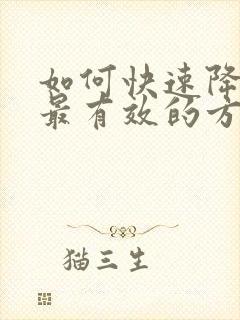 如何快速降
最有效的方
猫三生